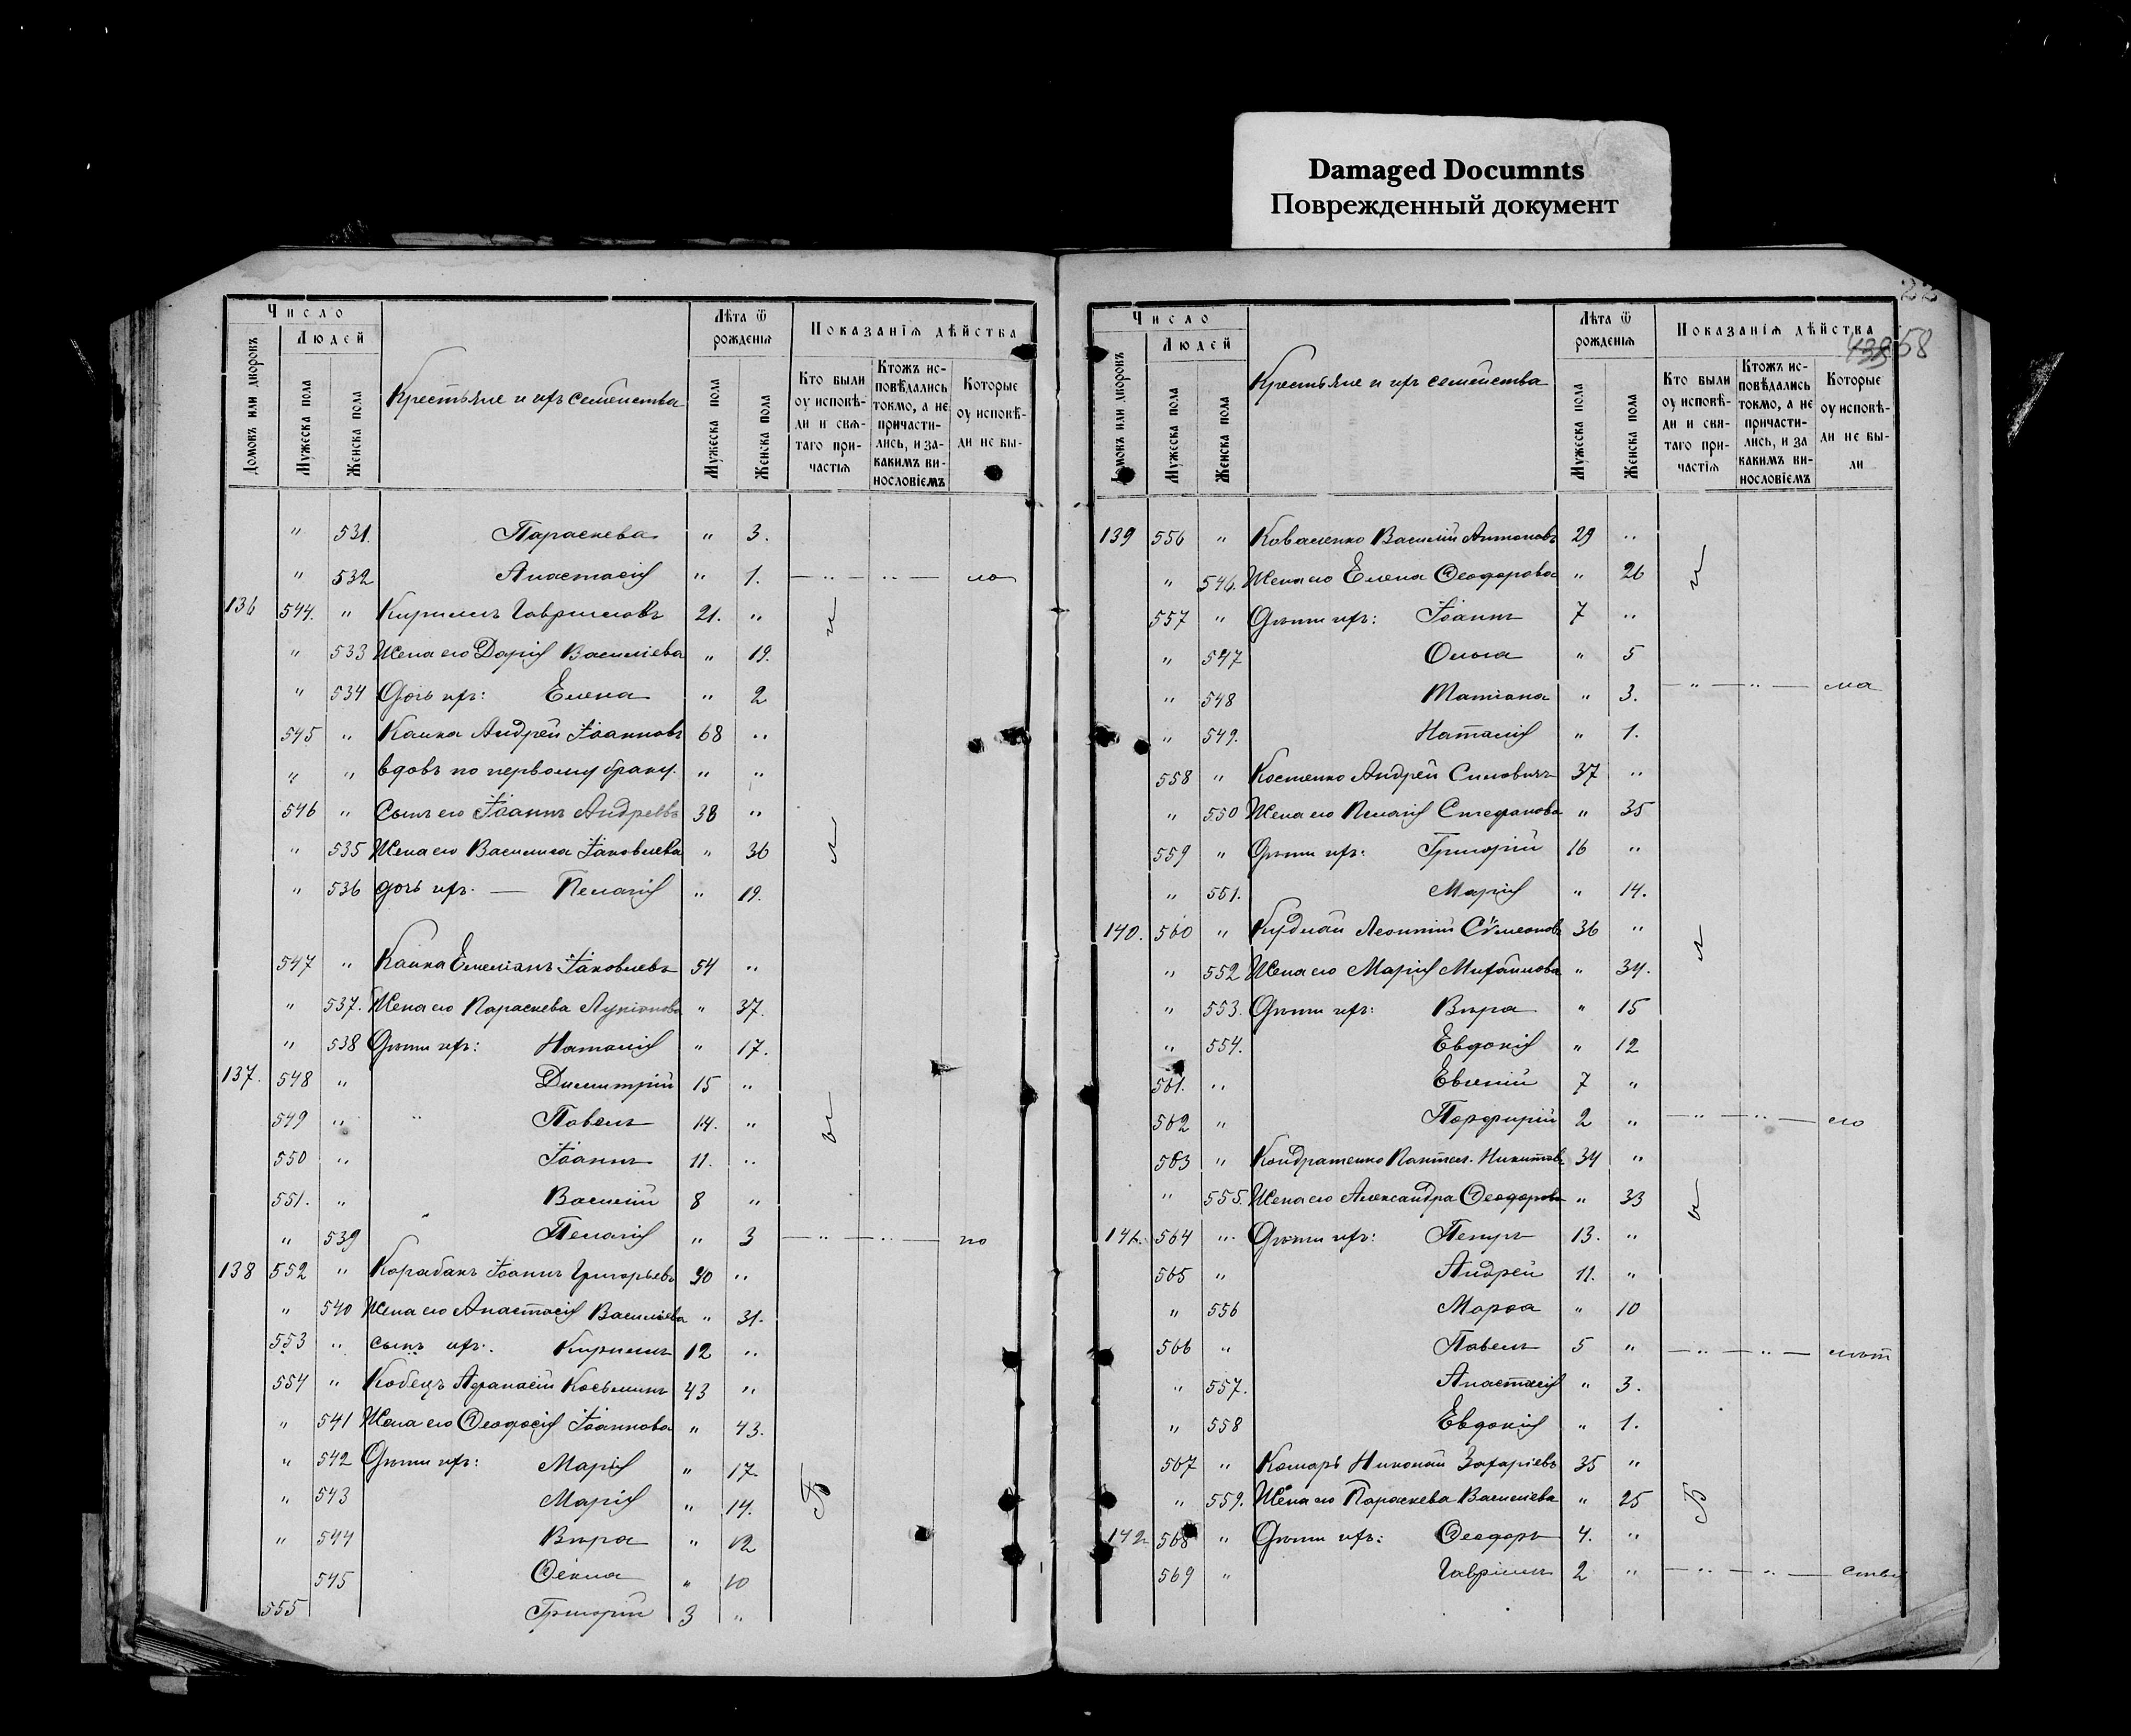 Damaged Documnts
Поврежденный документ
58
Число
Людей
Домовъ или дворовъ
Мужеска пола
Женска пола
Крестьяне и ихъ семейства
Лѣта ѿ рожденія
Мужеска пола
Женска пола
Показанія дѣйства
Кто были оу исповѣ-
ди и свя-
таго при-
частія
Ктожъ ис-
повѣдались
токмо, а не
причасти-
лись, и за-
какимъ ви-
нословіемъ
Которые
оу исповѣ-
ди не бы-
" 531. Параскева " 3.
" 532 Анастасія " 1. — " — " — ло
136 544. " Кириллъ Гавріиловъ 21. "
" 533 Жена его Дарія Василіева " 19.
" 534 Дочь ихъ: Елена " 2
545 " Калка Андрей Іоанновъ 68 "
" " вдовъ по первому браку. " "
546 " Сынъ его Іоаннъ Андреевъ 38 "
" 535 Жена его Василиса Іаковлева " 36
" 536 дочь ихъ. — Пелагія " 19.
547 " Калка Емеліанъ Іаковлевъ 54 "
" 537. Жена его Параскева Лукіанова " 37.
" 538 Дѣти ихъ: Наталія " 17.
137. 548 " Димитрій 15 "
549 " " Павелъ 14. "
550 " Іоаннъ 11. "
551. " Василій 8 "
" 539 Пелагія " 3 — " — " — по
138 552 " Карабанъ Іоаннъ Григорьевъ 90 "
" 540 Жена его Анастасія Василіева " 31.
553 " сынъ ихъ. Кириллъ 12 "
554 " Кобецъ Афанасій Косьминъ 43 "
" 541 Жена его Ѳеодосія Іоаннова " 43.
" 542 Дѣти ихъ: Марія " 17.
" 543 Марія " 14.
" 544 Вѣра " 12
545 Ѳекла " 10
555 Григорій 3 "
Число
Людей
Домовъ или дворовъ
Мужеска пола
Женска пола
Крестьяне и ихъ семейства
Лѣта ѿ рожденія
Мужеска пола
Женска пола
Показанія дѣйства
Кто были
оу исповѣ-
ди и свя-
таго при-
частія
Ктожъ ис-
повѣдались
токмо, а не
причасти-
лись, и за
какимъ ви-
нословіемъ
Которые
оу исповѣ-
ди не бы-
ли
139 556 " Коваленко Василій Антоновъ 29 "
" 546. Жена его Елена Ѳеодорова " 26
557 " Дѣти ихъ: Іоаннъ 7 "
" 547 Ольга " 5
" 548 Татіана " 3. — " — " — ма
" 549. Наталія " 1.
558 " Костенко Андрей Силовичъ 37 "
" 550 Жена его Пелагія Стефанова " 35
559 " Дѣти ихъ: Григорій 16 "
" 551. Марія " 14.
140. 560 " Кудлай Леонтій Сѵмеоновъ 36 "
" 552 Жена его Марія Михайлова " 34.
" 553. Дѣти ихъ: Вѣра " 15
" 554. Евдокія " 12
561. " Евгеній 7 "
562 " Порфирій 2 " — " — " — ло
563 " Кондратенко Пантел. Никитовъ 34 "
" 555. Жена его Александра Ѳеодорова " 33
141. 564 " Дѣти ихъ: Петръ 13. "
565 " Андрей 11. "
" 556 Марѳа " 10
566 " Павелъ 5 " — " — " — лѣт
" 557. Анастасія " 3.
" 558 Евдокія " 1.
567 " Комаръ Николай Захаріевъ 35 "
" 559. Жена его Параскева Василіева " 25
142 568 " Дѣти ихъ: Ѳеодоръ 4. "
569 " Гавріилъ 2 " — " — " —